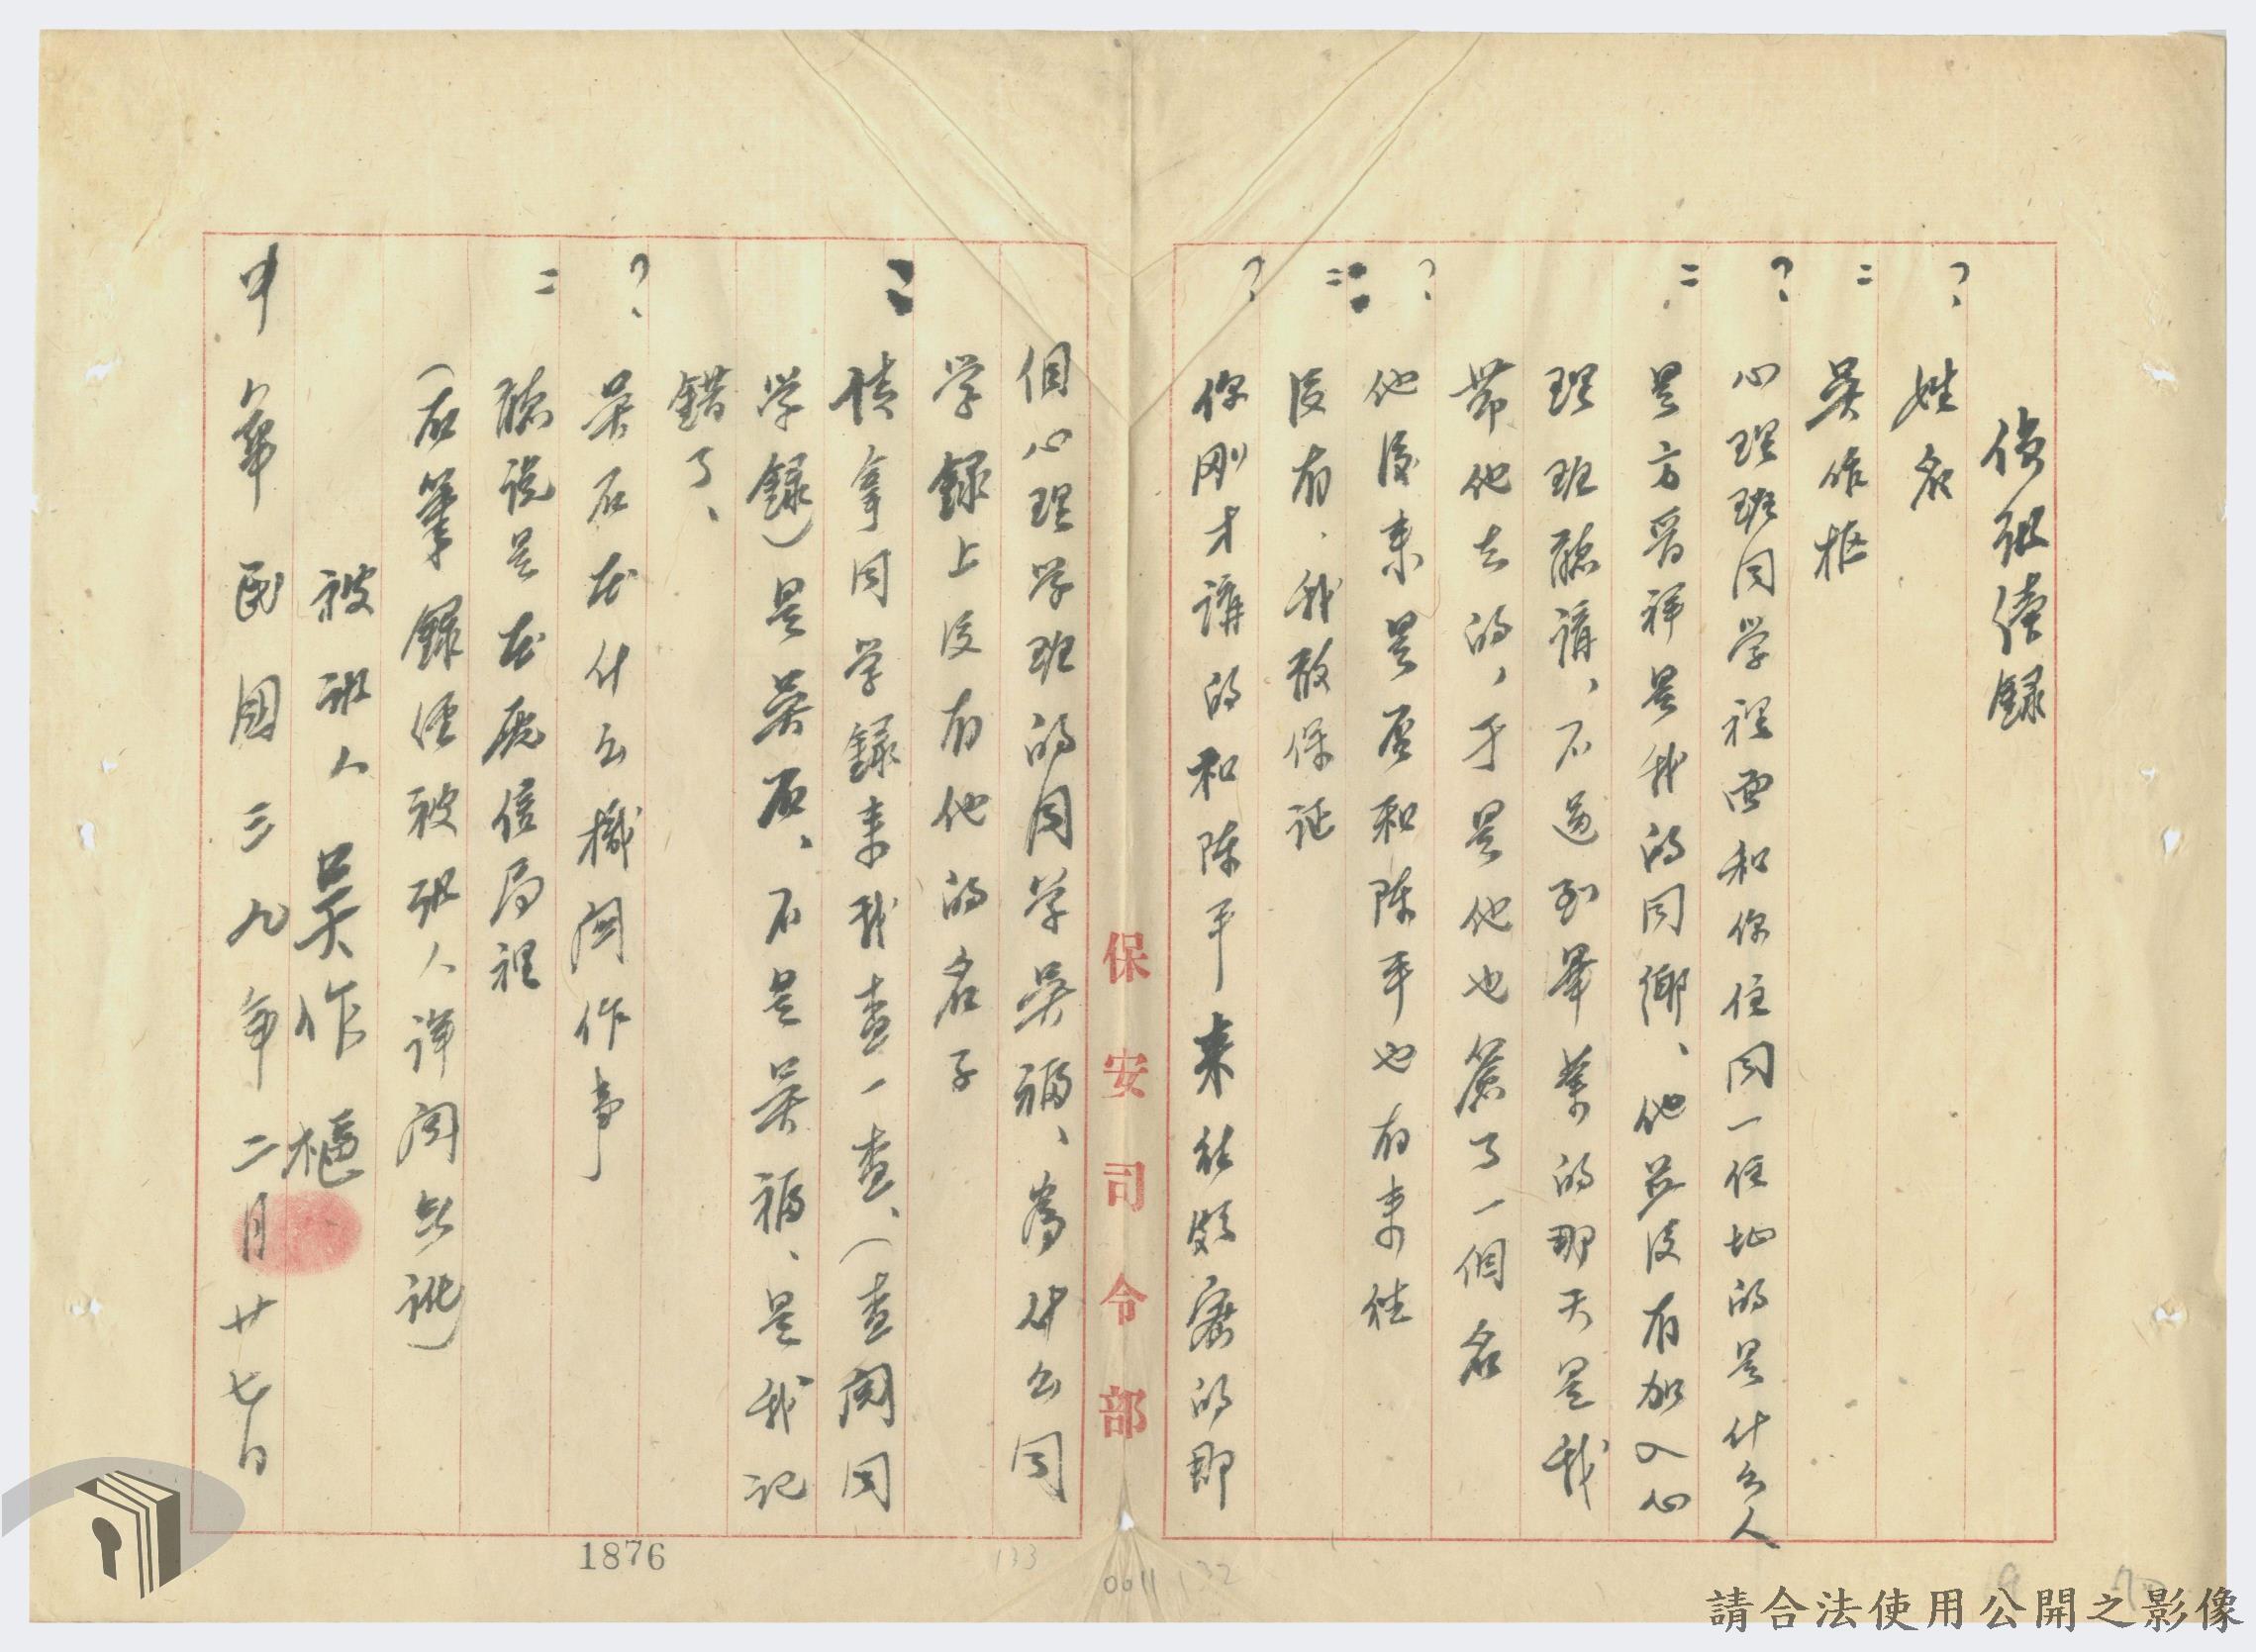 偵訊續錄
？ 姓名
： 吳作枢
？ 心理班同学裡面和你住同一住址的是什么人
： 是方晋祥是我的同鄉、他並没有加入心
理班聽講，不过到畢業的那天是我
帶他去的，于是他也簽了一個名
？ 他後来是否和陈平也有来往
： 没有．我敢保证
？ 你刚才講的和陈平来往頗密的那
個心理学班的同学吳福、為什么同
学録上没有他的名子
： 請拿同学録来我查一查、（查閱同
学録）是吴石、不是吴福、是我记
錯了、
？ 吴石在什么機関作事
： 聽说是在電信局裡
（右筆録经被訊人詳閱無訛）
被訊人 吴作樞
中華民國三九年二月廿七日
保安司令部
1876
133
0011
132
請合法使用公開之影像